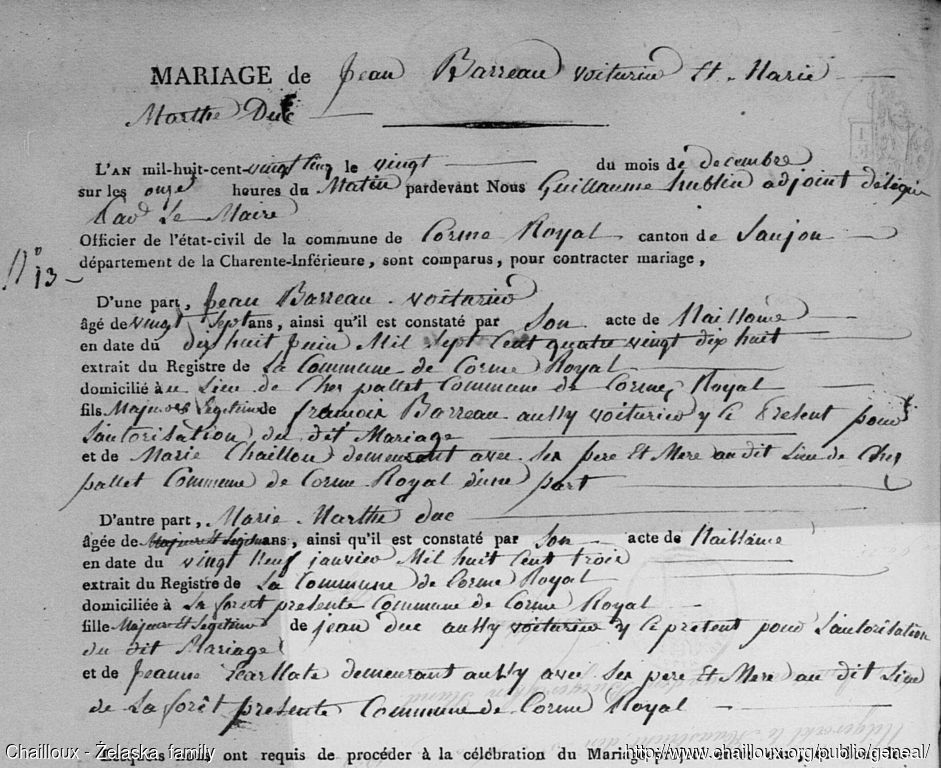 MARIAGE de Jean Barreau voiturier Et Marie
Marthe Duc
L'AN mil-huit-cent-vingt cinq le vingt du mois de decembre
sur les onze heures du Matin pardevant Nous Guillaume hublin adjoint délégué
Le Maire
Officier de l'état-civil de la commune de Corme Royal canton de Saujon
N° 13
département de la Charente-Inférieure, sont comparus, pour contracter mariage,
D'une part, Jean Barreau voiturier
âgé de vingt Sept ans, ainsi qu'il est constaté par Son acte de Naissance
en date du dix huit juin Mil Sept Cent quatre vingt dix huit
extrait du Registre de La Commune de Corme Royal
domicilié au Lieu de Cher pallet Commune de Corme Royal
fils Majeur Legitime de francois Barreau aussy voiturier y ce Present pour
L'autorisation du dit Mariage
et de Marie Chaillou demeurant avec Ses pere Et Mere au dit Lieu de Cher
pallet Commune de Corme Royal d'une part
D'autre part, Marie Marthe duc
âgée de Majeure et Legitime ans, ainsi qu'il est constaté par Son acte de Naissance
en date du vingt Neuf janvier Mil huit Cent trois
extrait du Registre de La Commune de Corme Royal
domiciliée à La forêt presente Commune de Corme Royal
fille Majeure et Legitime de jean duc aussy voiturier y ce present pour L'autorisation
du dit Mariage
et de Jeanne demeurant aussy avec Ses pere Et Mere au dit Lieu
de La forêt presente Commune de Corme Royal
Lesquels nous ont requis de procéder à la célébration du Mariage projeté entre eux, et dont les
Chailloux - Żelaska family
http://www.chailloux.org/public/geneal/